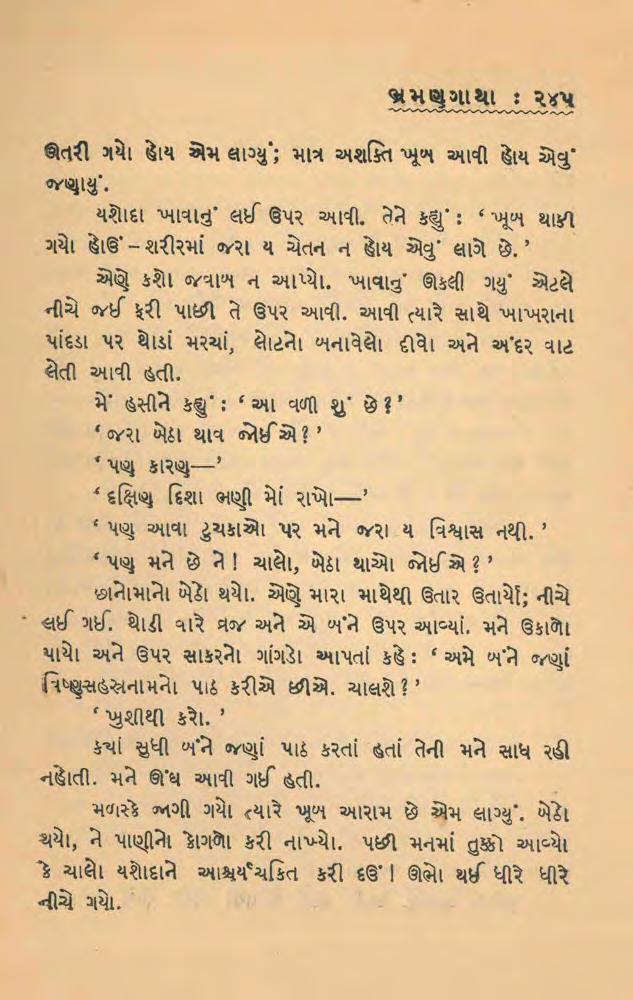 ભ્રમણગાથા : ૨૪૫
ઊતરી ગયો હોય એમ લાગ્યું; માત્ર અશક્તિ ખૂબ આવી હોય એવું
જણાયું.
યશોદા ખાવાનું લઈ ઉપર આવી. તેને કહ્યું : ‘ ખૂબ થાકી
ગયો હોઉં – શરીરમાં જરા ય ચેતન ન હોય એવું લાગે છે. ’
એણે કશો જવાબ ન આપ્યો. ખાવાનું ઊકલી ગયું એટલે
નીચે જઈ ફરી પાછી તે ઉપર આવી. આવી ત્યારે સાથે ખાખરાના
પાંદડા પર થોડાં મરચાં, લોટનો બનાવેલો દીવો અને અંદર વાટ
લેતી આવી હતી.
મેં હસીને કહ્યું : ‘ આ વળી શું છે ? ’
‘ જરા બેઠા થાવ જોઈએ ? ’
‘ પણ કારણ— ’
‘ દક્ષિણ દિશા ભણી મોં રાખો— ’
‘ પણ આવા ટુચકાઓ પર મને જરા ય વિશ્વાસ નથી. ’
‘ પણ મને છે ને ! ચાલો, બેઠા થાઓ જોઈએ ? ’
છાનોમાનો બેઠો થયો. એણે મારા માથેથી ઉતાર ઉતાર્યો; નીચે
લઈ ગઈ. થોડી વારે વ્રજ અને એ બંને ઉપર આવ્યાં. મને ઉકાળો
પાયો અને ઉપર સાકરનો ગાંગડો આપતાં કહે : ‘ અમે બંને જણાં
વિષ્ણુસહસ્રનામનો પાઠ કરીએ છીએ. ચાલશે ? ’
‘ ખુશીથી કરો. ’
ક્યાં સુધી બંને જણાં પાઠ કરતાં હતાં તેની મને સાધ રહી
નહોતી. મને ઊંઘ આવી ગઈ હતી.
મળસ્કે જાગી ગયો ત્યારે ખૂબ આરામ છે એમ લાગ્યું. બેઠો
થયો, ને પાણીનો કોગળો કરી નાખ્યો. પછી મનમાં તુક્કો આવ્યો
કે ચાલો યશોદાને આશ્ચર્યચકિત કરી દઉં ! ઊભો થઈ ધીરે ધીરે
નીચે ગયો.